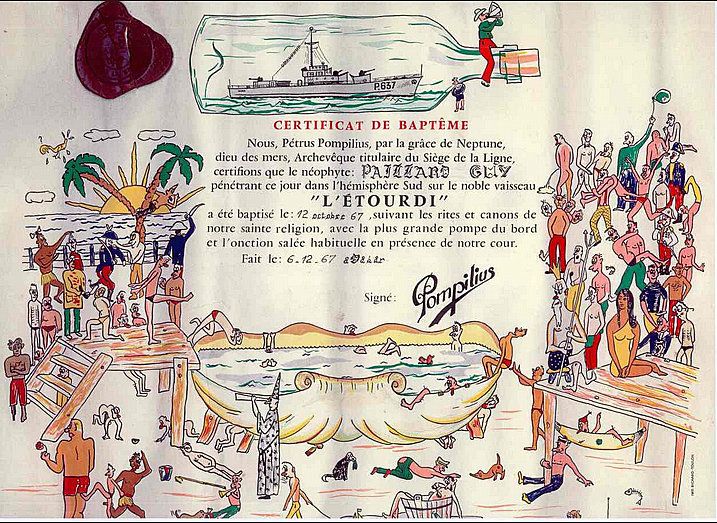 P.637
CERTIFICAT DE BAPTÊME
Nous, Pétrus Pompilius, par la grâce de Neptune,
dieu des mers, Archevêque titulaire du Siège de la Ligne,
certifions que le néophyte: PAILLARD GUY
pénétrant ce jour dans l'hémisphère Sud sur le noble vaisseau
"L'ÉTOURDI"
a été baptisé le: 12 octobre 67, suivant les rites et canons de
notre sainte religion, avec la plus grande pompe du bord
et l'onction salée habituelle en présence de notre cour.
Fait le: 6.12.67 à Dakar
Signé: Pompilius
TOULON